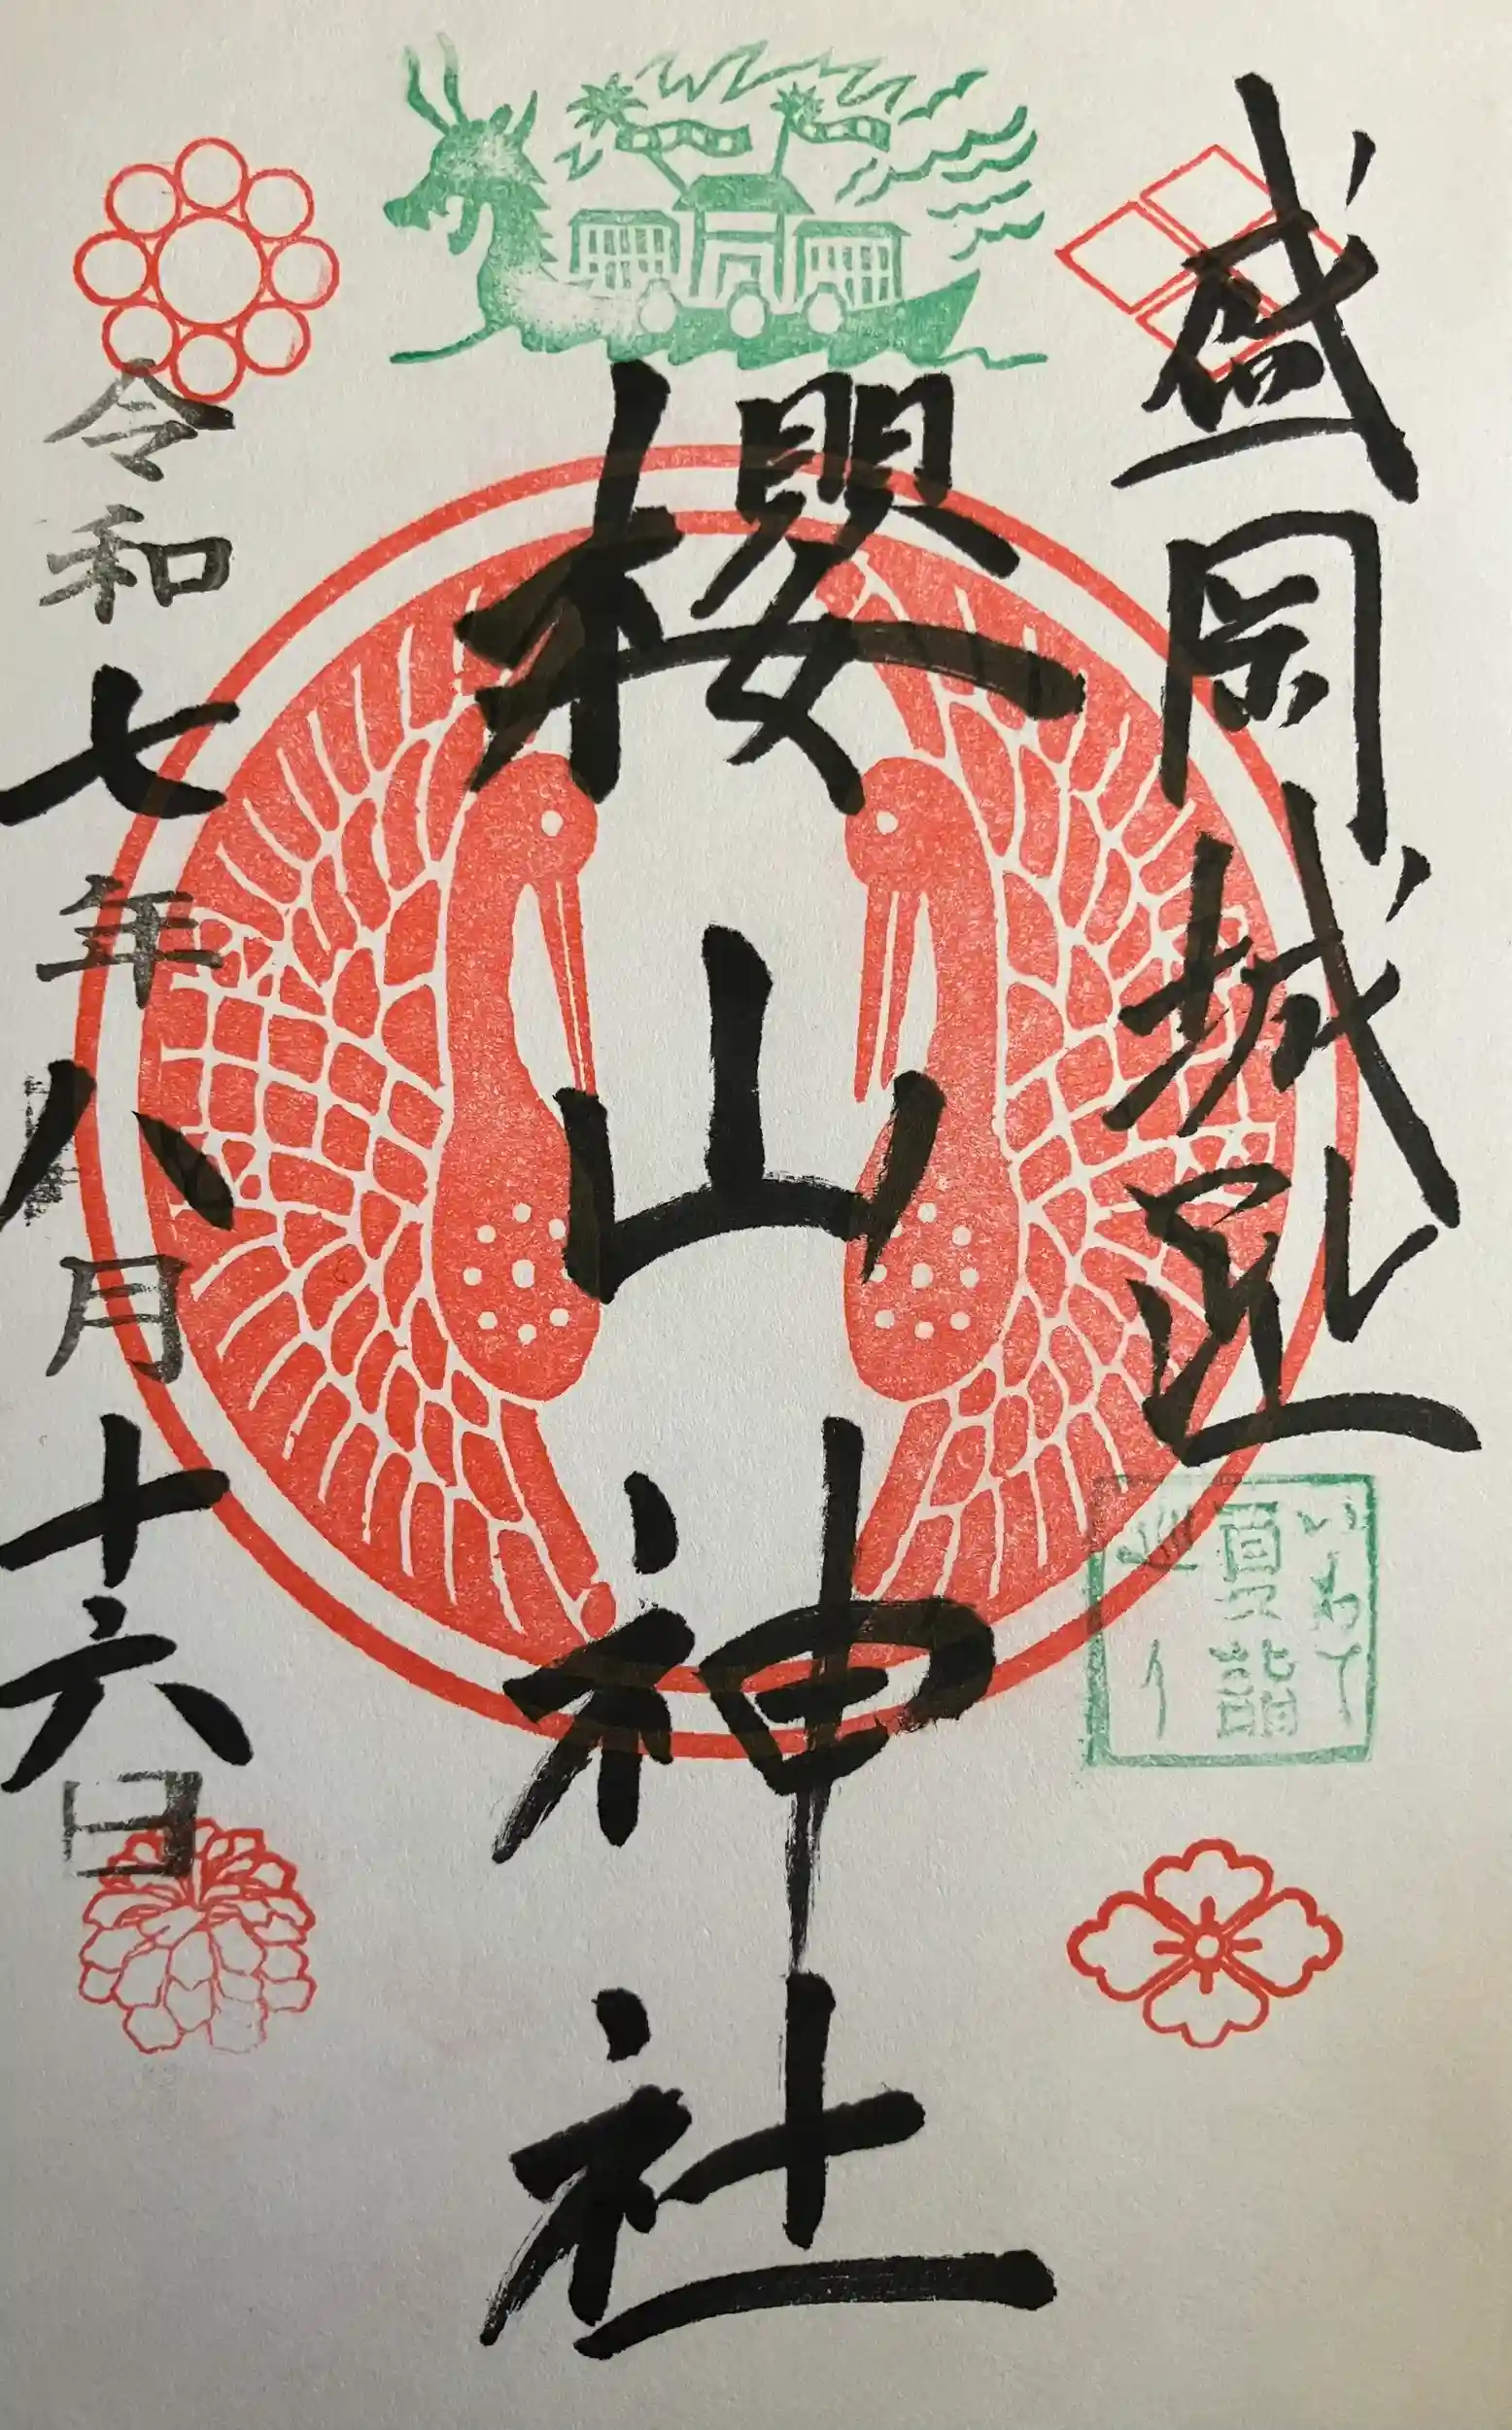 盛岡城趾
櫻山神社
令和七年八月十六日
いわて